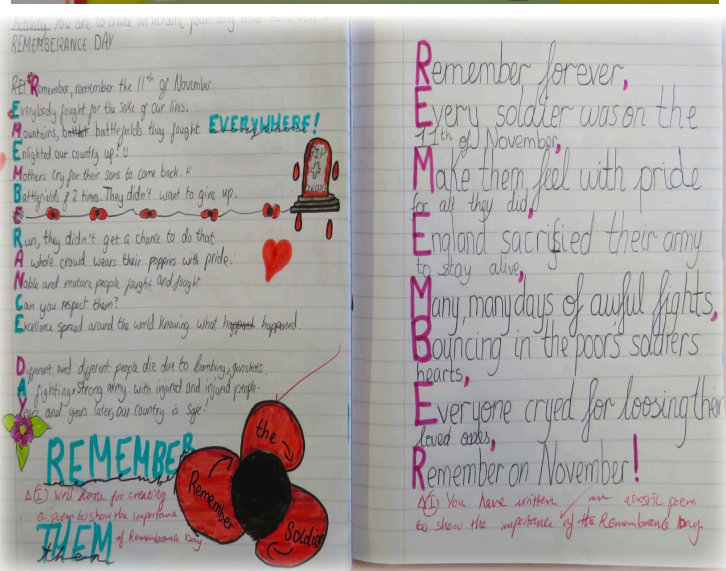 Activity: You are to create an acrostic poem
REMEMBERANCE DAY
RE: Remember, remember the 11th of November
Everybody fought for the sake of our lives.
Mountains, battlefields they fought EVERYWHERE!
Enlighted our country up!!!
Mothers cry for their sons to come back.
Battlefields 2 times. They didn't want to give up.
Run, they didn't get a chance to do that
A whole crowd wears their poppies with pride.
Noble and mature people fought and fought
Can you respect them?
Excellence spread around the world knowing what happened.
Different and different people die due to bombing, gunshots.
A fighting strong army with injured and injured people.
Years and years later, our country is safe.
REMEMBER
remember
THEM
them
the
Remember
Soldier
RIP
△ (I) Well done for creating
a poem to show the importance
of Remembrance Day.
Remember forever,
Every soldier was on the
11th of November,
Make them feel with pride
for all they did,
England sacrifised their army
to stay alive,
Many, many days of awful fights,
Bouncing in the poor's soldiers
hearts,
Everyone cryed for loosing their
loved ones,
Remember on November!
△ (I) You have written an acrostic poem
to show the importance of the Remembrance Day.